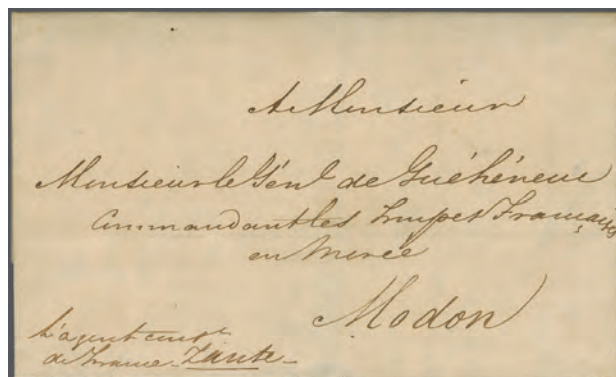 A Monsieur
Monsieur le Gén.l de Guéhéneuc
Commandant les troupes Françaises
en Morée
Modon
L'agent cons.re
de France Zante